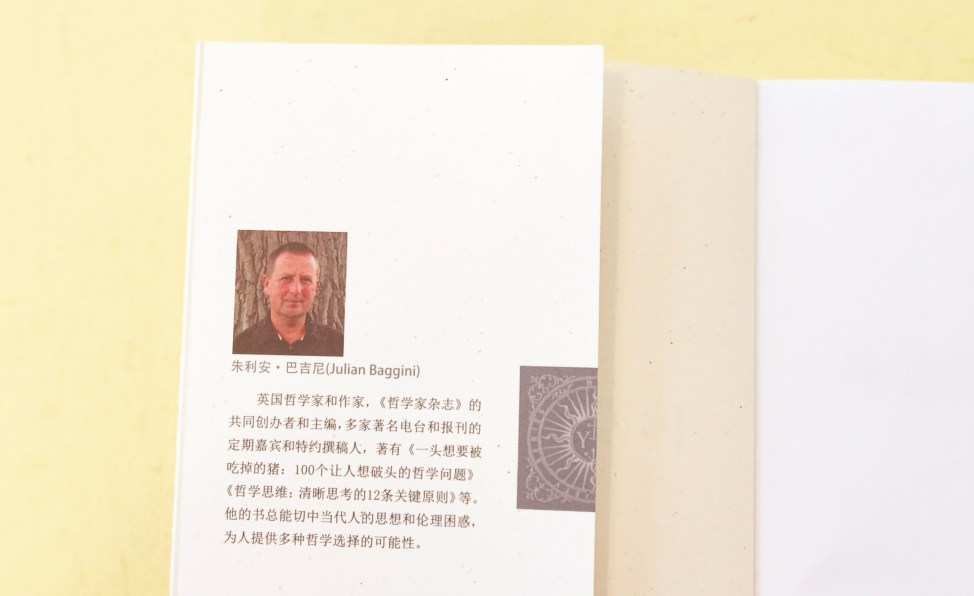 朱利安·巴吉尼(Julian Baggini)
英国哲学家和作家，《哲学家杂志》的
共同创办者和主编，多家著名电台和报刊的
定期嘉宾和特约撰稿人，著有《一头想要被
吃掉的猪：100个让人想破头的哲学问题》
《哲学思维：清晰思考的12条关键原则》等。
他的书总能切中当代人的思想和伦理困惑，
为人提供多种哲学选择的可能性。